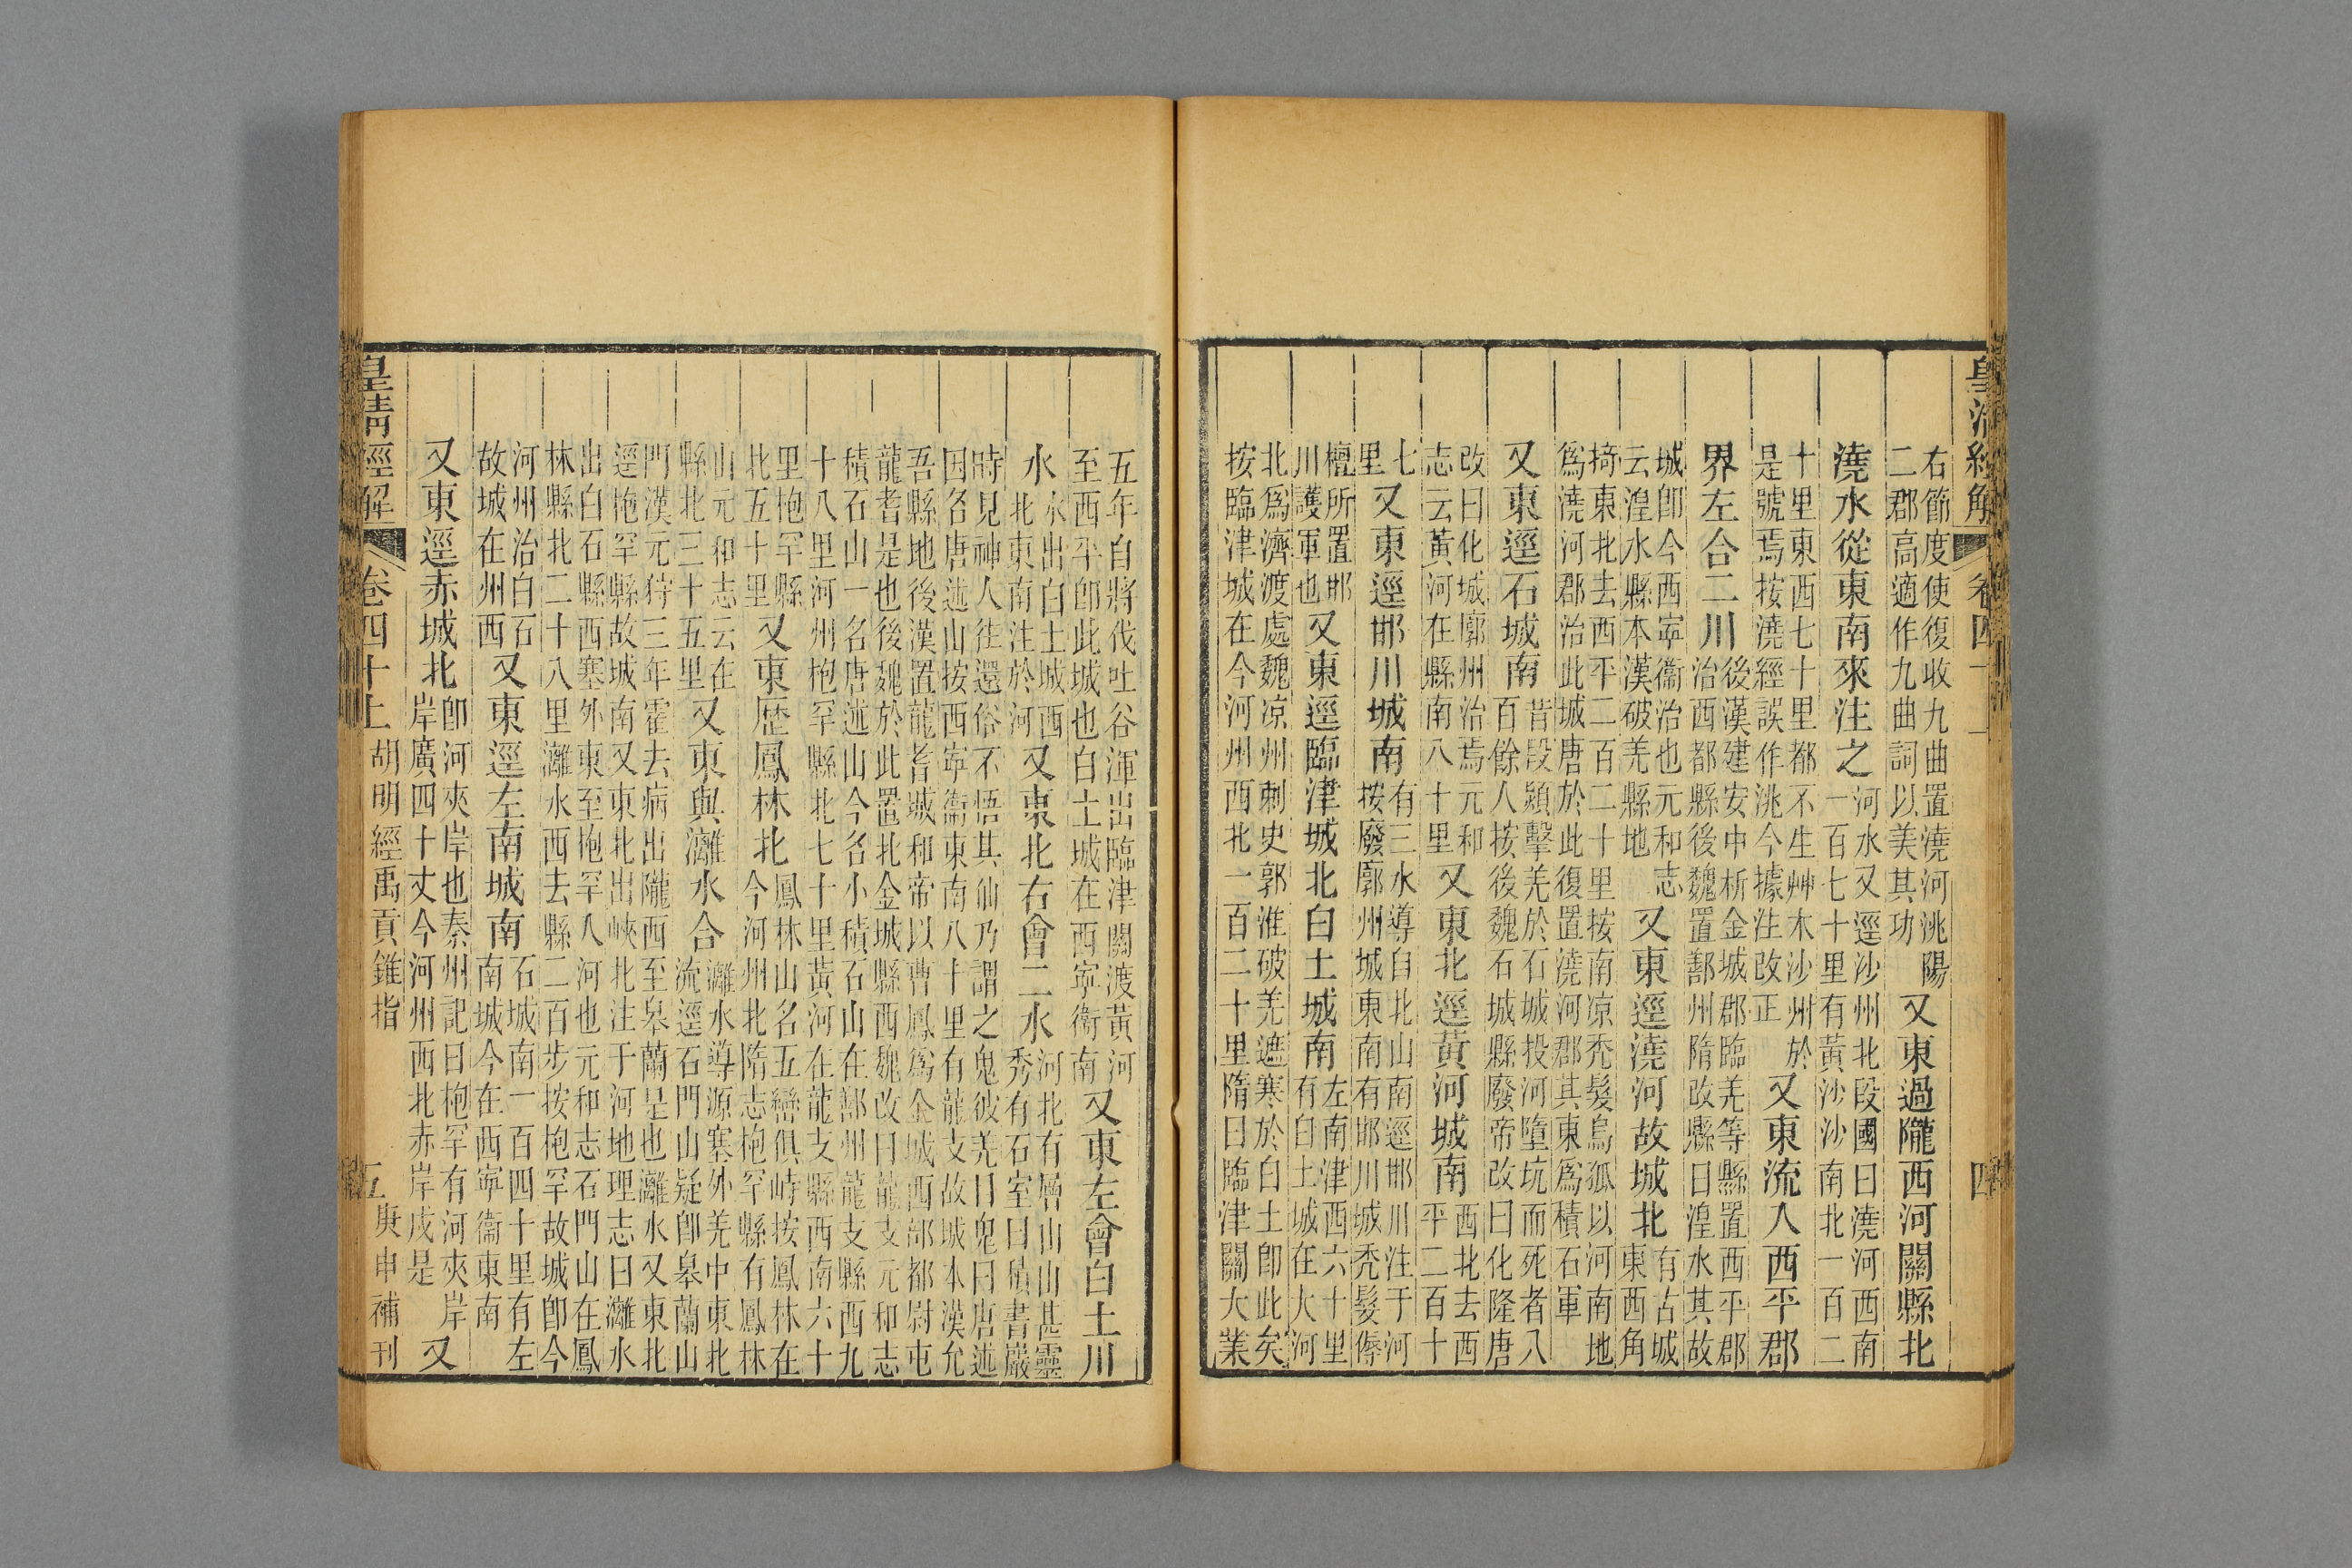 皇清經解
卷四十上
四
右節度使復收九曲置澆河洮陽
二郡高適作九曲詞以美其功
又東過隴西河關縣北
澆水從東南來注之
河水又逕沙州北段國曰澆河西南
一百七十里有黃沙沙南北一百二
十里東西七十里都不生艸木沙州於
是號焉按澆經誤作洮今據注改正
又東流入西平郡
界左合二川
後漢建安中析金城郡臨羌等縣置西平郡
治西都縣後魏置鄯州隋改縣曰湟水其故
城卽今西寧衞治也元和志
云湟水縣本漢破羌縣地
又東逕澆河故城北
有古城
東西角
掎東北去西平二百二十里按南凉禿髮烏孤以河南地
爲澆河郡治此城唐於此復置澆河郡其東爲積石軍
又東逕石城南
昔段熲擊羌於石城投河墮坑而死者八
百餘人按後魏石城縣廢帝改曰化隆唐
改曰化城廓州治焉元和
志云黃河在縣南八十里
又東北逕黃河城南
西北去西
平二百十
七
里
又東逕邯川城南
有三水導自北山南逕邯川注于河
按廢廓州城東南有邯川城禿髮傉
檀所置邯
川護軍也
又東逕臨津城北白土城南
左南津西六十里
有白土城在大河
北爲濟渡處魏凉州刺史郭淮破羌遮塞於白土卽此矣
按臨津城在今河州西北一百二十里隋曰臨津關大業
五年自將伐吐谷渾出臨津關渡黃河
至西平卽此城也白土城在西寧衞南
又東左會白土川
水
水出白土城西
北東南注於河
又東北右會二水
河北有層山山甚靈
秀有石室曰積書巖
時見神人往還俗不悟其仙乃謂之鬼彼羌目鬼曰唐述
因名唐述山按西寧衞東南八十里有龍支故城本漢允
吾縣地後漢置龍耆城和帝以曹鳳爲金城西部都尉屯
龍耆是也後魏於此置北金城縣西魏改曰龍支元和志
積石山一名唐述山今名小積石山在鄯州龍支縣西九
十八里河州枹罕縣北七十里黃河在龍支縣西南六十
里枹罕縣
北五十里
又東歷鳳林北
鳳林山名五巒俱峙按鳳林在
今河州北隋志枹罕縣有鳳林
山元和志云在
縣北三十五里
又東與灕水合
灕水導源塞外羌中東北
流逕石門山疑卽皋蘭山
門漢元狩三年霍去病出隴西至皋蘭是也灕水又東北
逕枹罕縣故城南又東北出峽北注于河地理志曰灕水
出白石縣西塞外東至枹罕入河也元和志石門山在鳳
林縣北二十八里灕水西去縣二百步按枹罕故城卽今
河州治白石
故城在州西
又東逕左南城南
石城南一百四十里有左
南城今在西寧衞東南
又東逕赤城北
卽河夾岸也秦州記曰枹罕有河夾岸
岸廣四十丈今河州西北赤岸戍是
又
皇清經解
卷四十上
胡明經禹貢錐指
五
庚申補刊